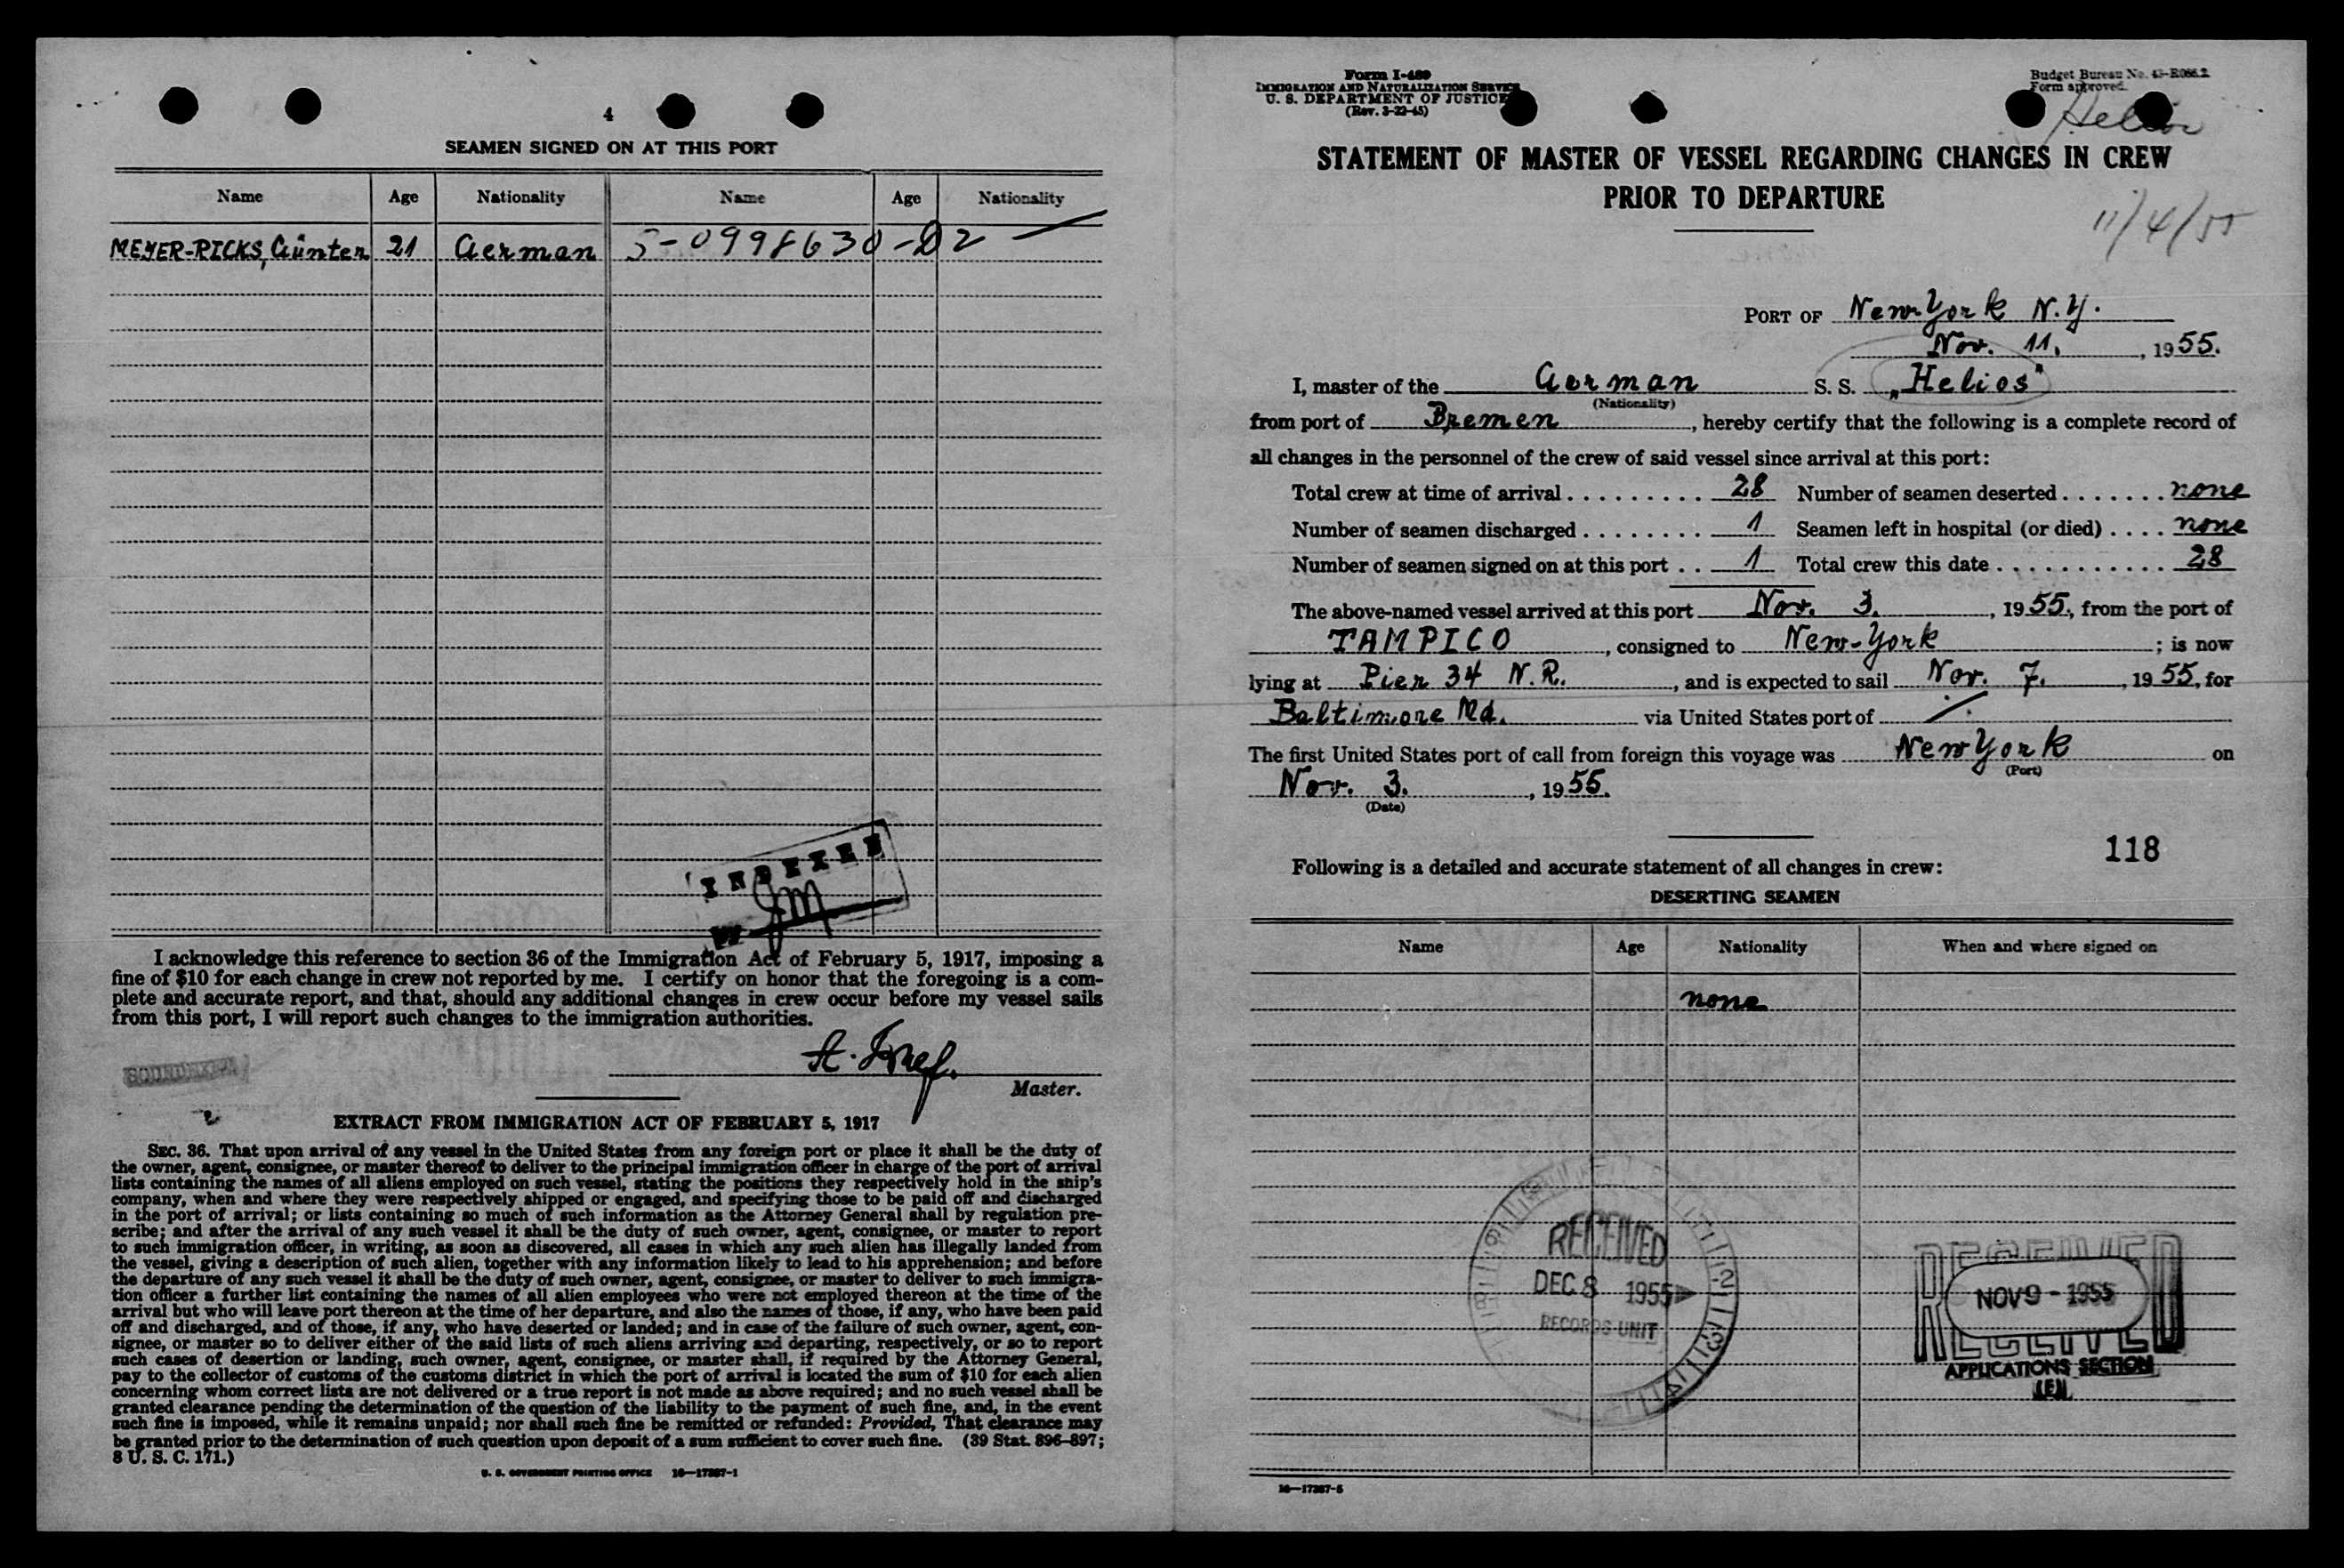 4
SEAMEN SIGNED ON AT THIS PORT
Name Age Nationality Name Age Nationality
MEYER-RICKS, Günter 21 German S-0998630-D2 —
INDEXED
I acknowledge this reference to section 36 of the Immigration Act of February 5, 1917, imposing a
fine of $10 for each change in crew not reported by me. I certify on honor that the foregoing is a com-
plete and accurate report, and that, should any additional changes in crew occur before my vessel sails
from this port, I will report such changes to the immigration authorities.
Master.
EXTRACT FROM IMMIGRATION ACT OF FEBRUARY 5, 1917
SEC. 36. That upon arrival of any vessel in the United States from any foreign port or place it shall be the duty of
the owner, agent, consignee, or master thereof to deliver to the principal immigration officer in charge of the port of arrival
lists containing the names of all aliens employed on such vessel, stating the positions they respectively hold in the ship's
company, when and where they were respectively shipped or engaged, and specifying those to be paid off and discharged
in the port of arrival; or lists containing so much of such information as the Attorney General shall by regulation pre-
scribe; and after the arrival of any such vessel it shall be the duty of such owner, agent, consignee, or master to report
to such immigration officer, in writing, as soon as discovered, all cases in which any such alien has illegally landed from
the vessel, giving a description of such alien, together with any information likely to lead to his apprehension; and before
the departure of any such vessel it shall be the duty of such owner, agent, consignee, or master to deliver to such immigra-
tion officer a further list containing the names of all alien employees who were not employed thereon at the time of the
arrival but who will leave port thereon at the time of her departure, and also the names of those, if any, who have been paid
off and discharged, and of those, if any, who have deserted or landed; and in case of the failure of such owner, agent, con-
signee, or master so to deliver either of the said lists of such aliens arriving and departing, respectively, or so to report
such cases of desertion or landing, such owner, agent, consignee, or master shall, if required by the Attorney General,
pay to the collector of customs of the customs district in which the port of arrival is located the sum of $10 for each alien
concerning whom correct lists are not delivered or a true report is not made as above required; and no such vessel shall be
granted clearance pending the determination of the question of the liability to the payment of such fine, and, in the event
such fine is imposed, while it remains unpaid; nor shall such fine be remitted or refunded: Provided, That clearance may
be granted prior to the determination of such question upon deposit of a sum sufficient to cover such fine. (39 Stat. 896-897;
8 U. S. C. 171.)
U. S. GOVERNMENT PRINTING OFFICE 16—17387-1
Form I-489
IMMIGRATION AND NATURALIZATION SERVICE
U. S. DEPARTMENT OF JUSTICE
(Rev. 3-22-45)
Budget Bureau No. 43-R066.2
Form approved.
Helios
STATEMENT OF MASTER OF VESSEL REGARDING CHANGES IN CREW
PRIOR TO DEPARTURE
11/4/55
PORT OF New York N.Y.
Nov. 11., 1955.
I, master of the German S. S. „Helios"
(Nationality)
from port of Bremen, hereby certify that the following is a complete record of
all changes in the personnel of the crew of said vessel since arrival at this port:
Total crew at time of arrival . . . . . . . . . . 28 Number of seamen deserted . . . . . . . none
Number of seamen discharged . . . . . . . . 1 Seamen left in hospital (or died) . . . . none
Number of seamen signed on at this port . . 1 Total crew this date . . . . . . . . . . . 28
The above-named vessel arrived at this port Nov. 3., 1955, from the port of
TAMPICO, consigned to New-York; is now
lying at Pier 34 N.R., and is expected to sail Nov. 7., 1955, for
Baltimore Md. via United States port of
The first United States port of call from foreign this voyage was New York on
(Port)
Nov. 3., 1955.
(Date)
118
Following is a detailed and accurate statement of all changes in crew:
DESERTING SEAMEN
Name Age Nationality When and where signed on
none
RECEIVED
DEC 8 1955
RECORDS UNIT
RECEIVED
NOV 9 - 1955
RECEIVED
APPLICATIONS SECTION
16—17387-5